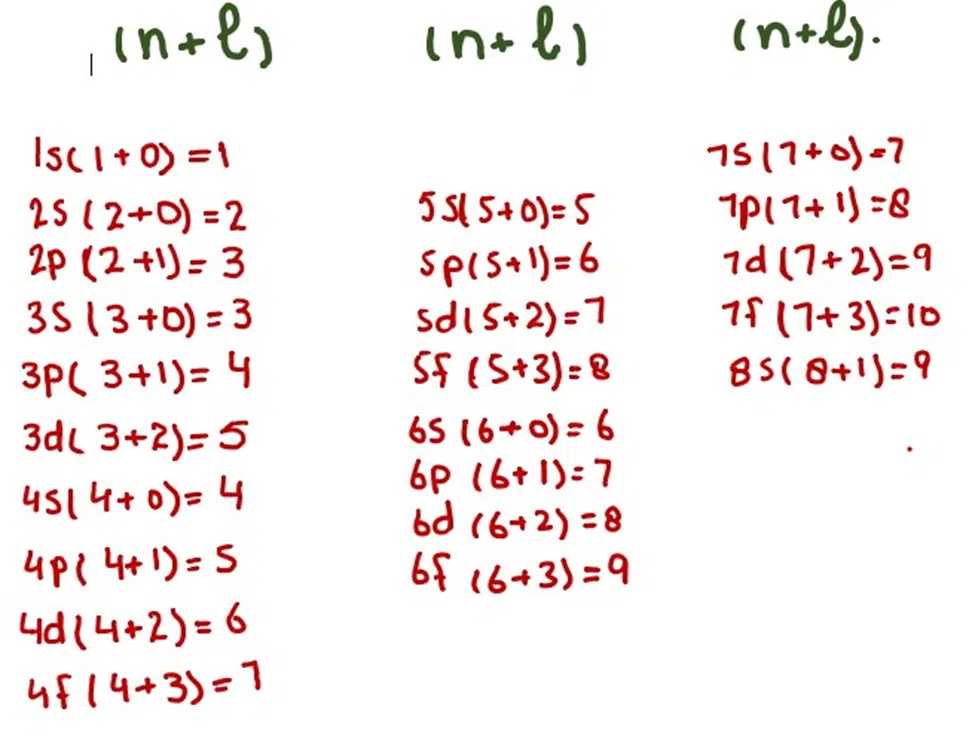 (n+l)
1s(1+0)=1
2s(2+0)=2
2p(2+1)=3
3s(3+0)=3
3p(3+1)=4
3d(3+2)=5
4s(4+0)=4
4p(4+1)=5
4d(4+2)=6
4f(4+3)=7
(n+l)
5s(5+0)=5
5p(5+1)=6
5d(5+2)=7
5f(5+3)=8
6s(6+0)=6
6p(6+1)=7
6d(6+2)=8
6f(6+3)=9
(n+l).
7s(7+0)=7
7p(7+1)=8
7d(7+2)=9
7f(7+3)=10
8s(8+1)=9